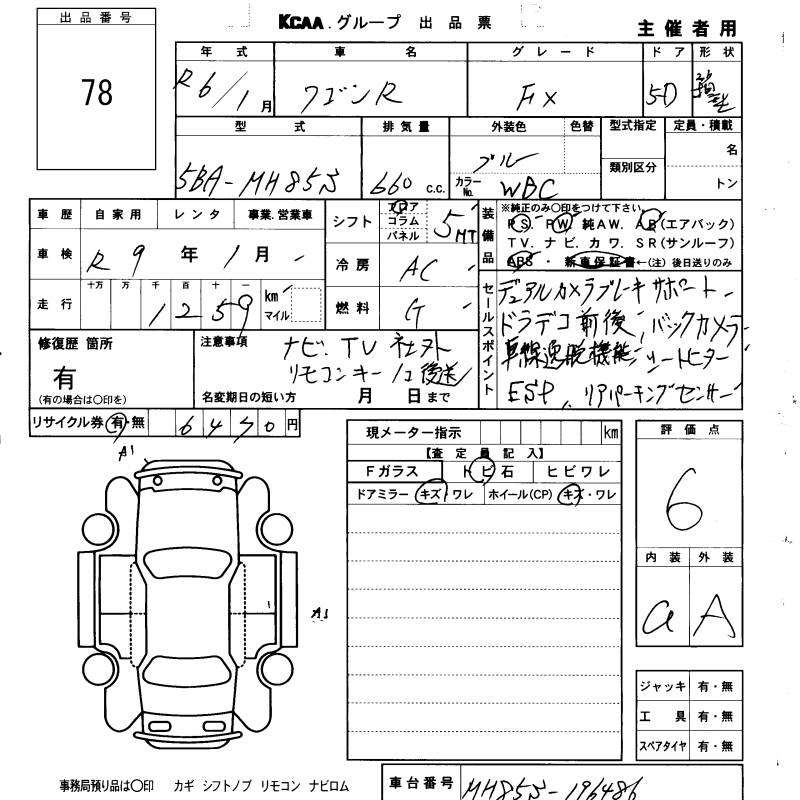 出品番号
78
KCAA.グループ 出品票
主催者用
年式 車名 グレード ドア 形状
R6/1月 ワゴンR FX 5D
型式 排気量 外装色 色替 型式指定 定員・積載
5BA-MH85S 660 c.c. ブルー カラーNo. WBC 類別区分 名 トン
車歴 自家用 レンタ 事業.営業車
車検 R9年1月
走行 十万 万 千 百 十 一 1259 km マイル
シフト フロア コラム パネル 5 MT
冷房 AC
燃料 G
装備品
※純正のみ○印をつけて下さい
PS. PW. 純AW. AB(エアバック)
TV. ナビ. カワ. SR(サンルーフ)
ABS・ 新車保証書←(注) 後日送りのみ
セールスポイント
デュアルカメラブレーキサポート
ドラデコ前後、バックカメラ
車線逸脱機能 シートヒーター
ESP、リアパーキングセンサー
修復歴 箇所
有
(有の場合は○印を)
注意事項
ナビ、TV 社外
リモコンキー1コ後送
名変期日の短い方 月 日まで
リサイクル券 有・無 6470円
現メーター指示 km
【査定員記入】
Fガラス トビ石 ヒビワレ
ドアミラー キズ/ワレ ホイール(CP) キズ・ワレ
評価点
6
内装 外装
a A
A1
A1
ジャッキ 有・無
工具 有・無
スペアタイヤ 有・無
事務局預り品は○印 カギ シフトノブ リモコン ナビロム
車台番号 MH85S-196486